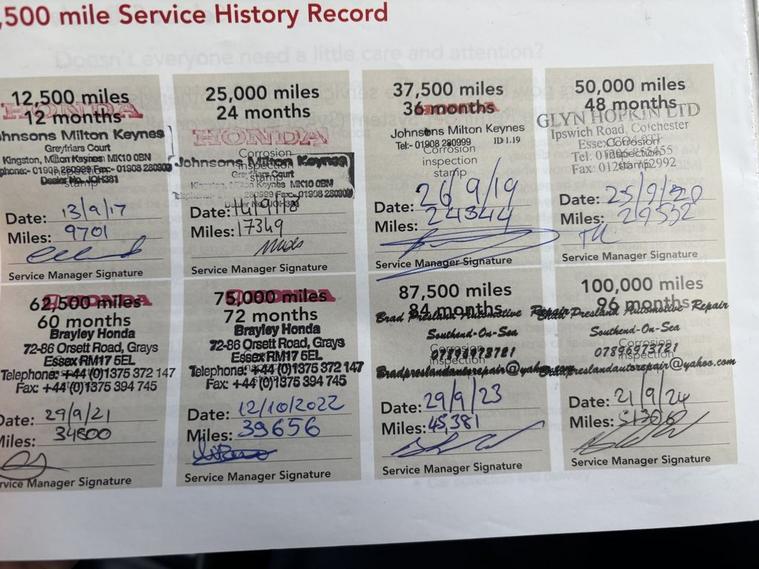 ,500 mile Service History Record
Doesn't everyone need a little care and attention?
12,500 miles
12 months
HONDA
ohnsons Milton Keynes
Greyfriars Court
Kingston, Milton Keynes MK10 0BN
Date: 13/9/17
Miles: 9701
Service Manager Signature
25,000 miles
24 months
HONDA
Corrosion
inspection
stamp
Johnsons Milton Keynes
Date: 14/9/18
Miles: 17349
Service Manager Signature
37,500 miles
36 months
HONDA
Johnsons Milton Keynes
Tel:- 01908 280999 ID 1.19
Corrosion
inspection
stamp
Date: 26/9/19
Miles: 24344
Service Manager Signature
50,000 miles
48 months
GLYN HOPKIN LTD
Ipswich Road, Colchester
Essex
Corrosion
inspection
stamp
Date: 25/9/20
Miles: 29532
Service Manager Signature
62,500 miles
HONDA
60 months
Brayley Honda
72-86 Orsett Road, Grays
Essex RM17 5EL
Telephone: +44 (0)1375 372 147
Fax: +44 (0)1375 394 745
Date: 29/9/21
Miles:
Service Manager Signature
75,000 miles
HONDA
72 months
Brayley Honda
72-86 Orsett Road, Grays
Essex RM17 5EL
Telephone: +44 (0)1375 372 147
Fax: +44 (0)1375 394 745
Date: 12/10/2022
Miles: 39656
Service Manager Signature
87,500 miles
84 months
Brad Presland Automotive Repair
Southend-On-Sea
Corrosion
inspection
Bradpreslandautorepair@yahoo.com
Date: 29/9/23
Miles: 45,381
Service Manager Signature
100,000 miles
96 months
Brad Presland Automotive Repair
Southend-On-Sea
Corrosion
inspection
Bradpreslandautorepair@yahoo.com
Date: 21/9/24
Miles:
Service Manager Signature